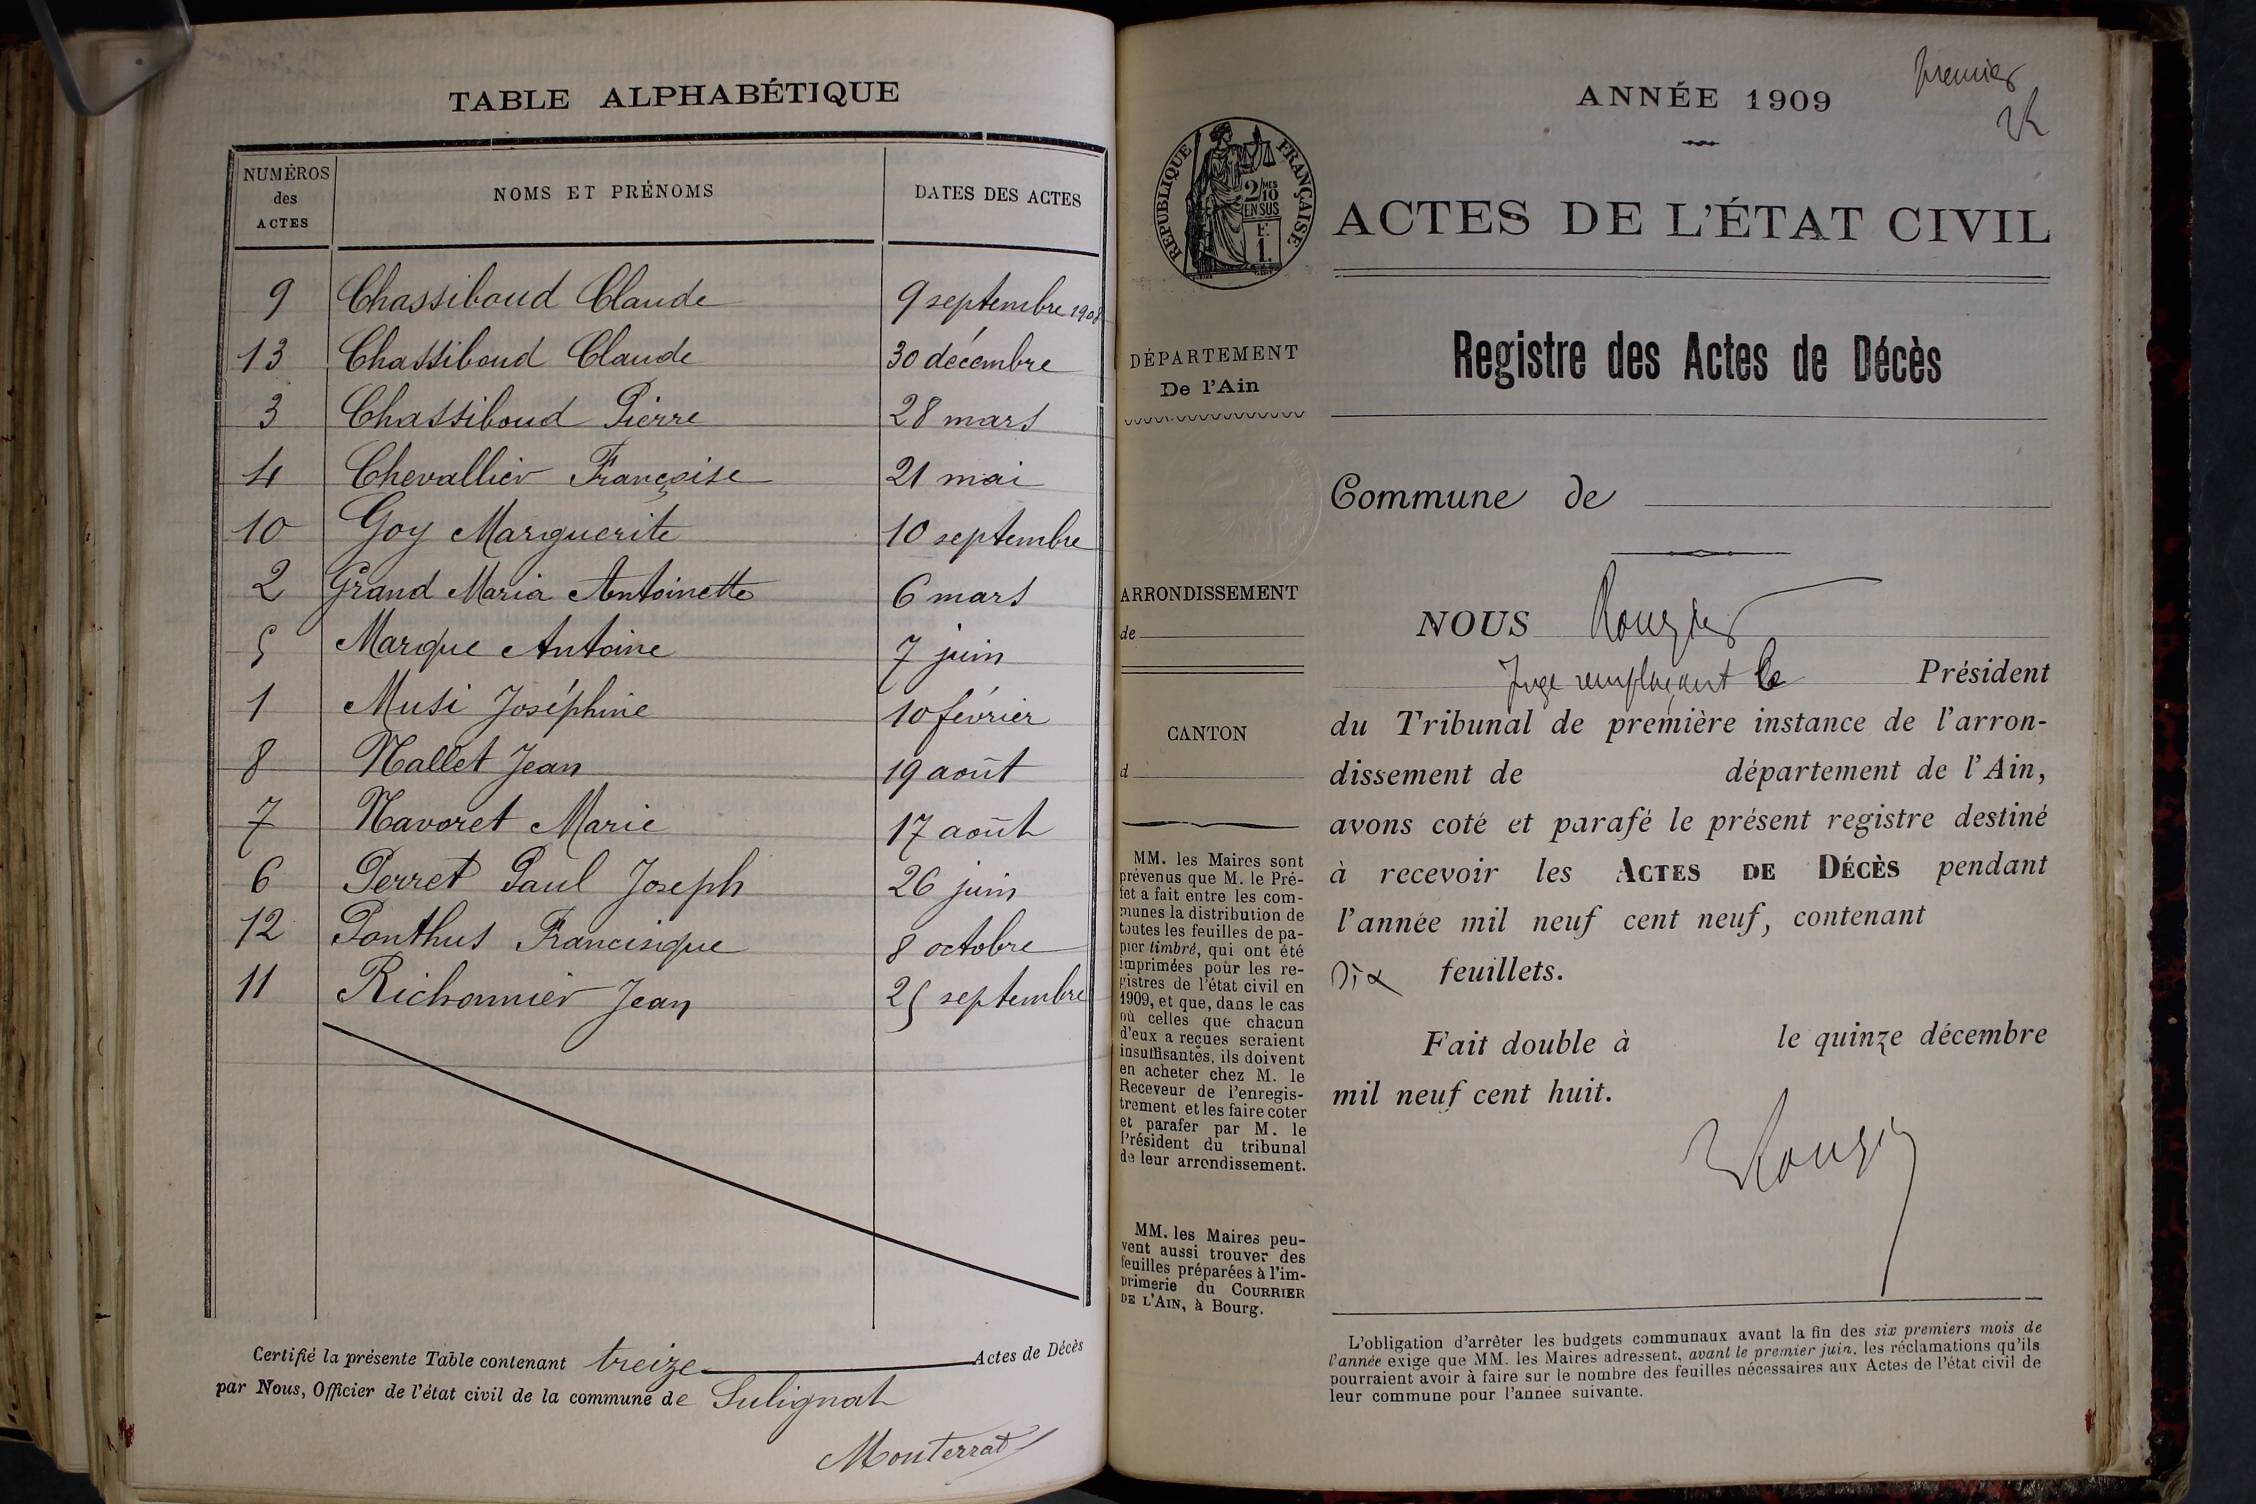 TABLE ALPHABÉTIQUE
NUMÉROS des ACTES NOMS ET PRÉNOMS DATES DES ACTES
9 Chassiboud Claude 9 septembre 1908
13 Chassiboud Claude 30 décembre
3 Chassiboud Pierre 28 mars
4 Chevallier Françoise 21 mai
10 Goy Marguerite 10 septembre
2 Grand Maria Antoinette 6 mars
5 Marque Antoine 7 juin
1 Musi Joséphine 10 février
8 Nallet Jean 19 août
7 Navoret Marie 17 août
6 Perret Paul Joseph 26 juin
12 Ponthus Francisque 8 octobre
11 Richonnier Jean 25 septembre
Certifié la présente Table contenant treize Actes de Décès
par Nous, Officier de l'état civil de la commune de Sulignat
Monterrat
premier
ANNÉE 1909
RÉPUBLIQUE FRANÇAISE
2/10 MES
EN SUS
F.
1.
ACTES DE L'ÉTAT CIVIL
Registre des Actes de Décès
DÉPARTEMENT
De l'Ain
Commune de
ARRONDISSEMENT
de
CANTON
d
MM. les Maires sont
prévenus que M. le Pré-
fet a fait entre les com-
munes la distribution de
toutes les feuilles de pa-
pier timbré, qui ont été
imprimées pour les re-
gistres de l'état civil en
1909, et que, dans le cas
où celles que chacun
d'eux a reçues seraient
insuffisantes, ils doivent
en acheter chez M. le
Receveur de l'enregis-
trement et les faire coter
et parafer par M. le
Président du tribunal
de leur arrondissement.
MM. les Maires peu-
vent aussi trouver des
feuilles préparées à l'im-
primerie du COURRIER
DE L'AIN, à Bourg.
NOUS Rougier
Juge remplaçant le Président
du Tribunal de première instance de l'arron-
dissement de département de l'Ain,
avons coté et parafé le présent registre destiné
à recevoir les ACTES DE DÉCÈS pendant
l'année mil neuf cent neuf, contenant
Dix feuillets.
Fait double à le quinze décembre
mil neuf cent huit.
Rougier
L'obligation d'arrêter les budgets communaux avant la fin des six premiers mois de
l'année exige que MM. les Maires adressent, avant le premier juin, les réclamations qu'ils
pourraient avoir à faire sur le nombre des feuilles nécessaires aux Actes de l'état civil de
leur commune pour l'année suivante.